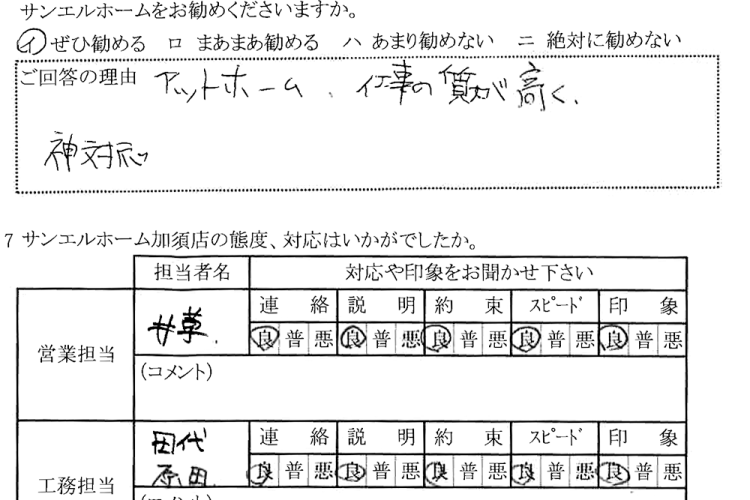 サンエルホームをお勧めくださいますか。
イ ぜひ勧める ロ まあまあ勧める ハ あまり勧めない ニ 絶対に勧めない
ご回答の理由 アットホーム、仕事の質が高く、
神対応
7 サンエルホーム加須店の態度、対応はいかがでしたか。
担当者名 対応や印象をお聞かせ下さい
営業担当 井草 連絡 説明 約束 スピード 印象
良 普 悪 良 普 悪 良 普 悪 良 普 悪 良 普 悪
(コメント)
工務担当 田代 連絡 説明 約束 スピード 印象
原田 良 普 悪 良 普 悪 良 普 悪 良 普 悪 良 普 悪
(コメント)